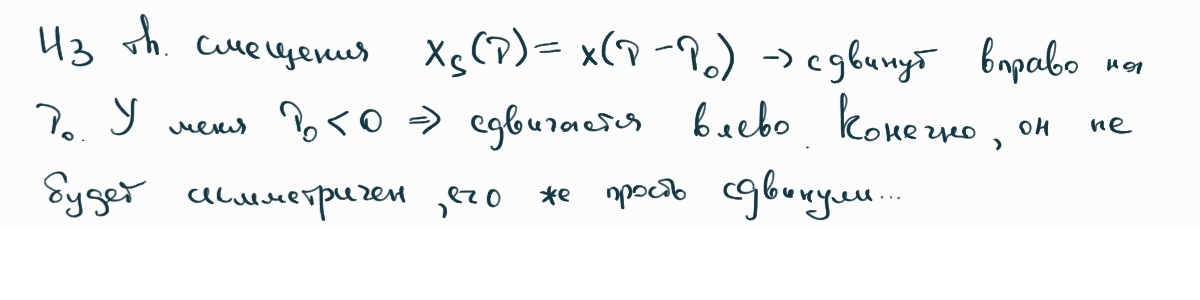 Из th. смещения x_s(τ) = x(τ - τ_0) → сдвинут вправо на
τ_0. У меня τ_0 < 0 => сдвигается влево. Конечно, он не
будет симметричен, его же просто сдвинули...